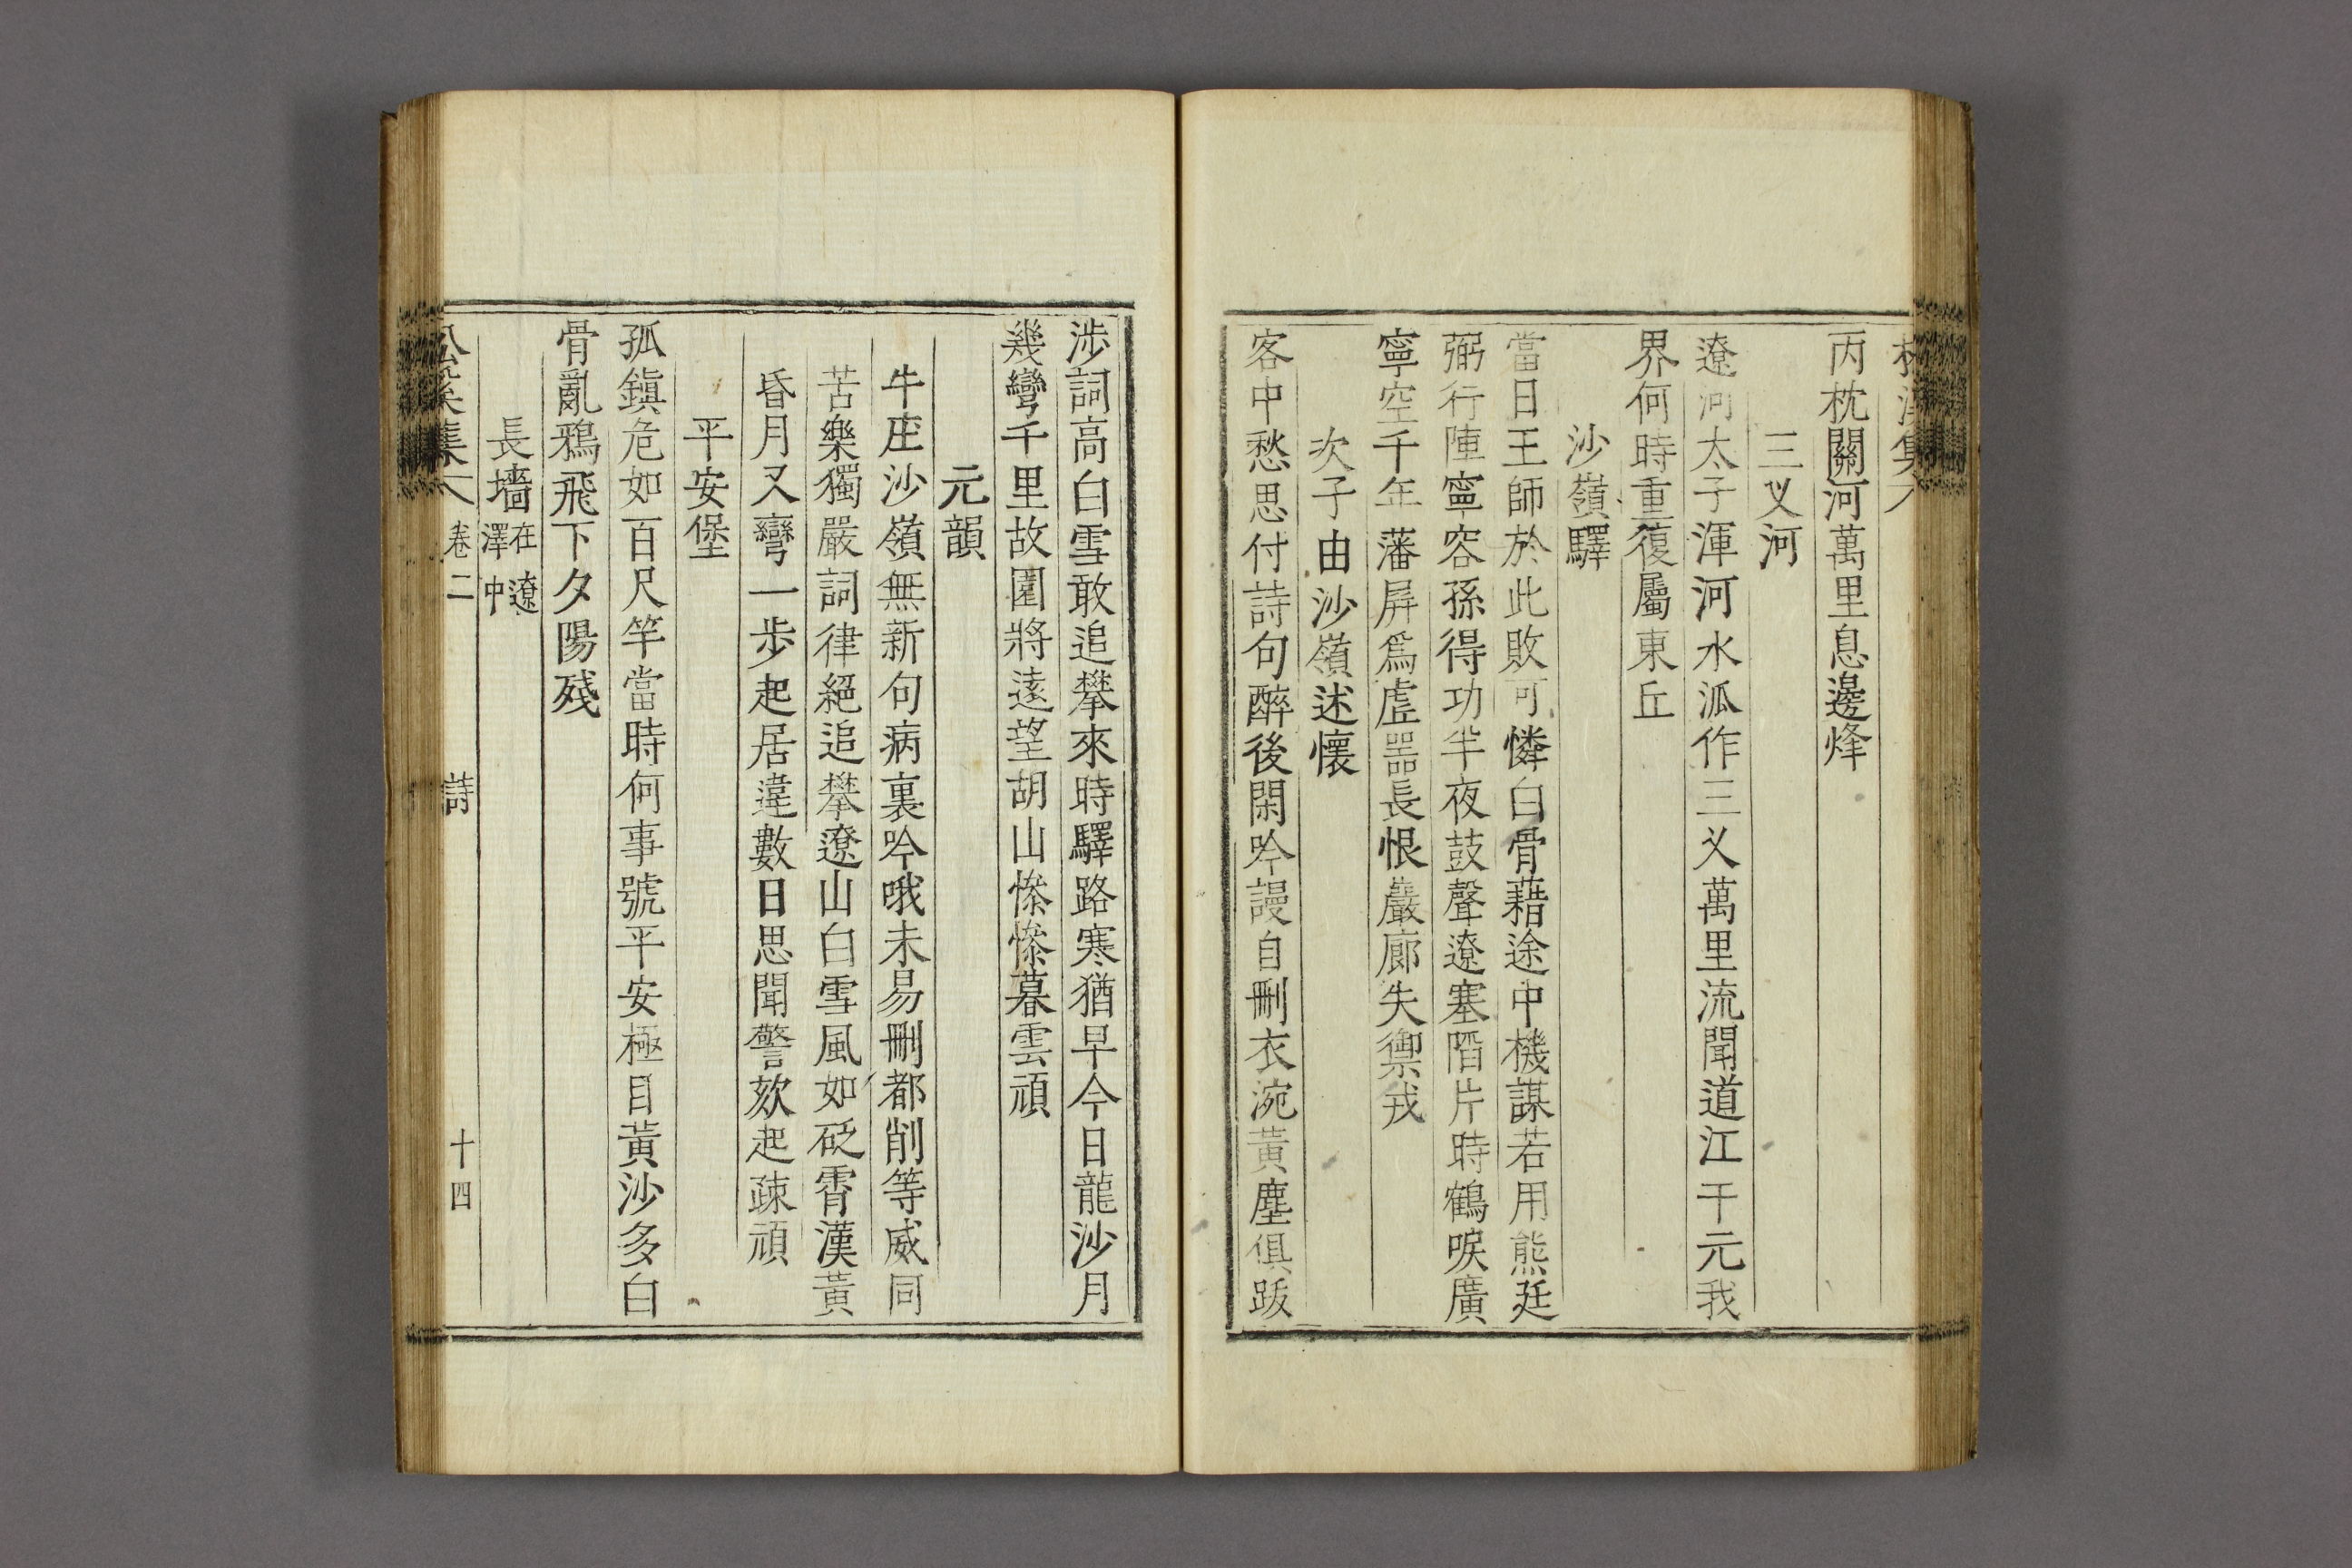 丙枕關河萬里息邊烽
三叉河
遼河太子渾河水派作三叉萬里流聞道江干元我
界何時重復屬東丘
沙嶺驛
當日王師於此敗可憐白骨藉途中機謀若用熊廷
弼行陣寧容孫得功半夜鼓聲遼塞陷片時鶴唳廣
寧空千年藩屏爲虛器長恨巖廊失禦戎
次子由沙嶺述懷
客中愁思付詩句醉後閑吟謾自刪衣涴黃塵俱跋
涉詞高白雪敢追攀來時驛路寒猶早今日龍沙月
幾彎千里故園將遠望胡山慘慘暮雲頑
元韻
牛庄沙嶺無新句病裏吟哦未易刪都削等威同
苦樂獨嚴詞律絕追攀遼山白雪風如砭霄漢黃
昏月又彎一步起居違數日思聞警欬起疎頑
平安堡
孤鎭危如百尺竿當時何事號平安極目黃沙多白
骨亂鴉飛下夕陽殘
長墻在遼澤中
卷二 詩 十四